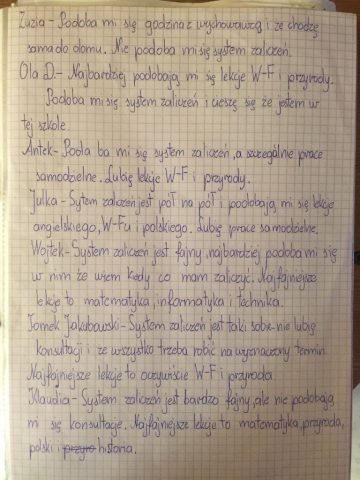 Zuzia - Podoba mi się godzina z wychowawcą i że chodzę
sama do domu. Nie podoba mi się system zaliczeń.
Ola D. - Najbardziej podobają mi się lekcje W-F i przyrody.
Podoba mi się system zaliczeń i cieszę się że jestem w
tej szkole.
Antek - Podoba ba mi się system zaliczeń, a szczególnie prace
samodzielne. Lubię lekcje W-F i przyrody.
Julka - Sytem zaliczeń jest pół na pół i podobają mi się lekcje
angielskiego, W-Fu i polskiego. Lubię prace samodzielne.
Wojtek - System zaliczeń jest fajny, najbardziej podoba mi się
w nim że wiem kiedy co mam zaliczyć. Najfajniejsze
lekcje to matematyka, informatyka i technika.
Tomek Jakubowski - System zaliczeń jest taki sobie - nie lubię
konsultacji i że wszystko trzeba robić na wyznaczony termin.
Najfajniejsze lekcje to oczywiście W-F i przyroda
Klaudia - System zaliczeń jest bardzo fajny, ale nie podobają
mi się konsultacje. Najfajniejsze lekcje to matematyka, przyroda,
polski i przyro historia.